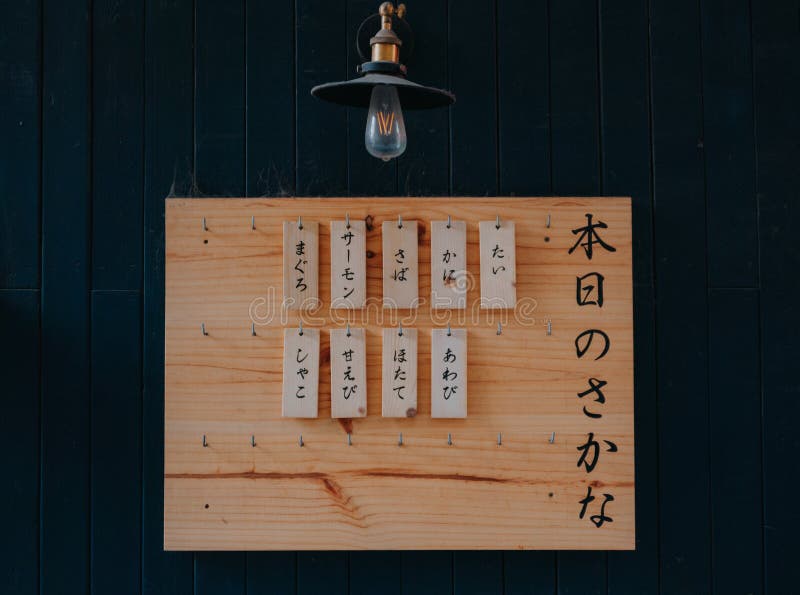 本日のさかな
たい
かに
さば
サーモン
まぐろ
あわび
ほたて
甘えび
しゃこ
dreamstime